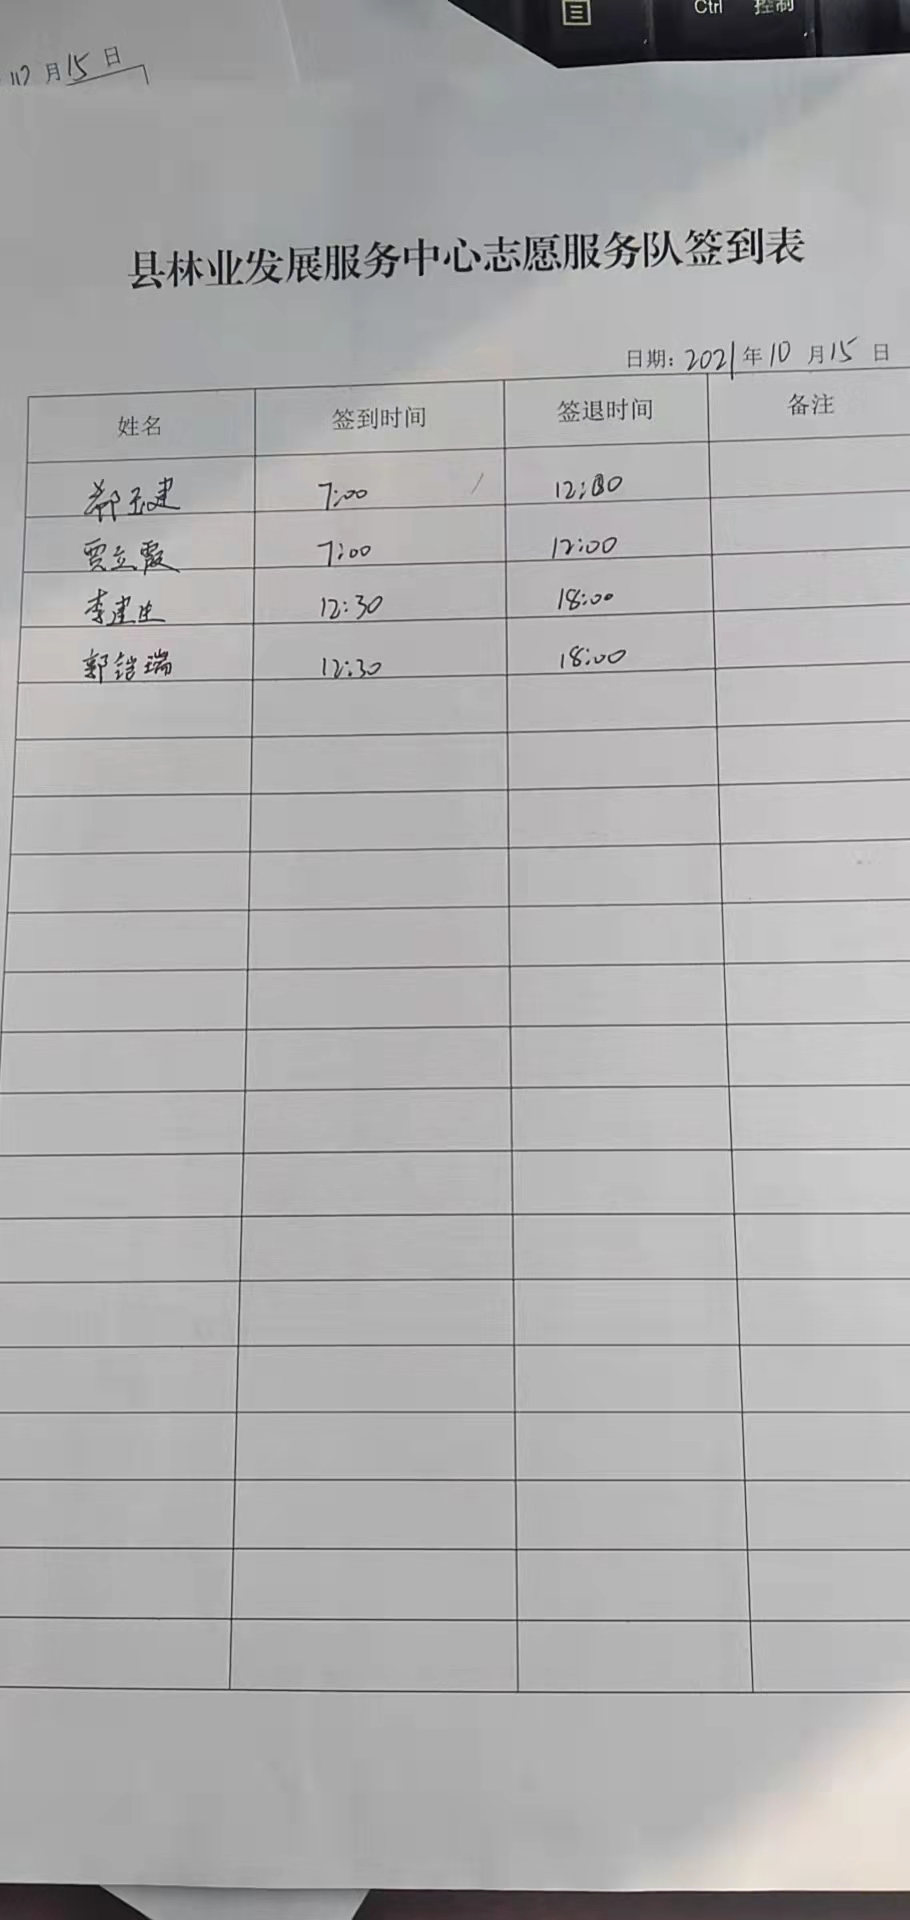 Ctrl 控制
10月15日
县林业发展服务中心志愿服务队签到表
日期: 2021年10月15日
姓名 签到时间 签退时间 备注
郝玉建 7:00 12:00
贾立霞 7:00 12:00
李建生 12:30 18:00
郭铠瑞 12:30 18:00